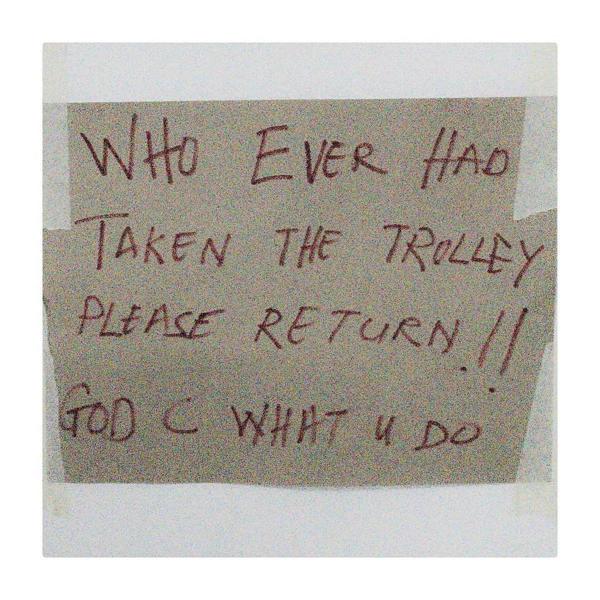 WHO EVER HAD
TAKEN THE TROLLEY
PLEASE RETURN!!
GOD C WHAT U DO